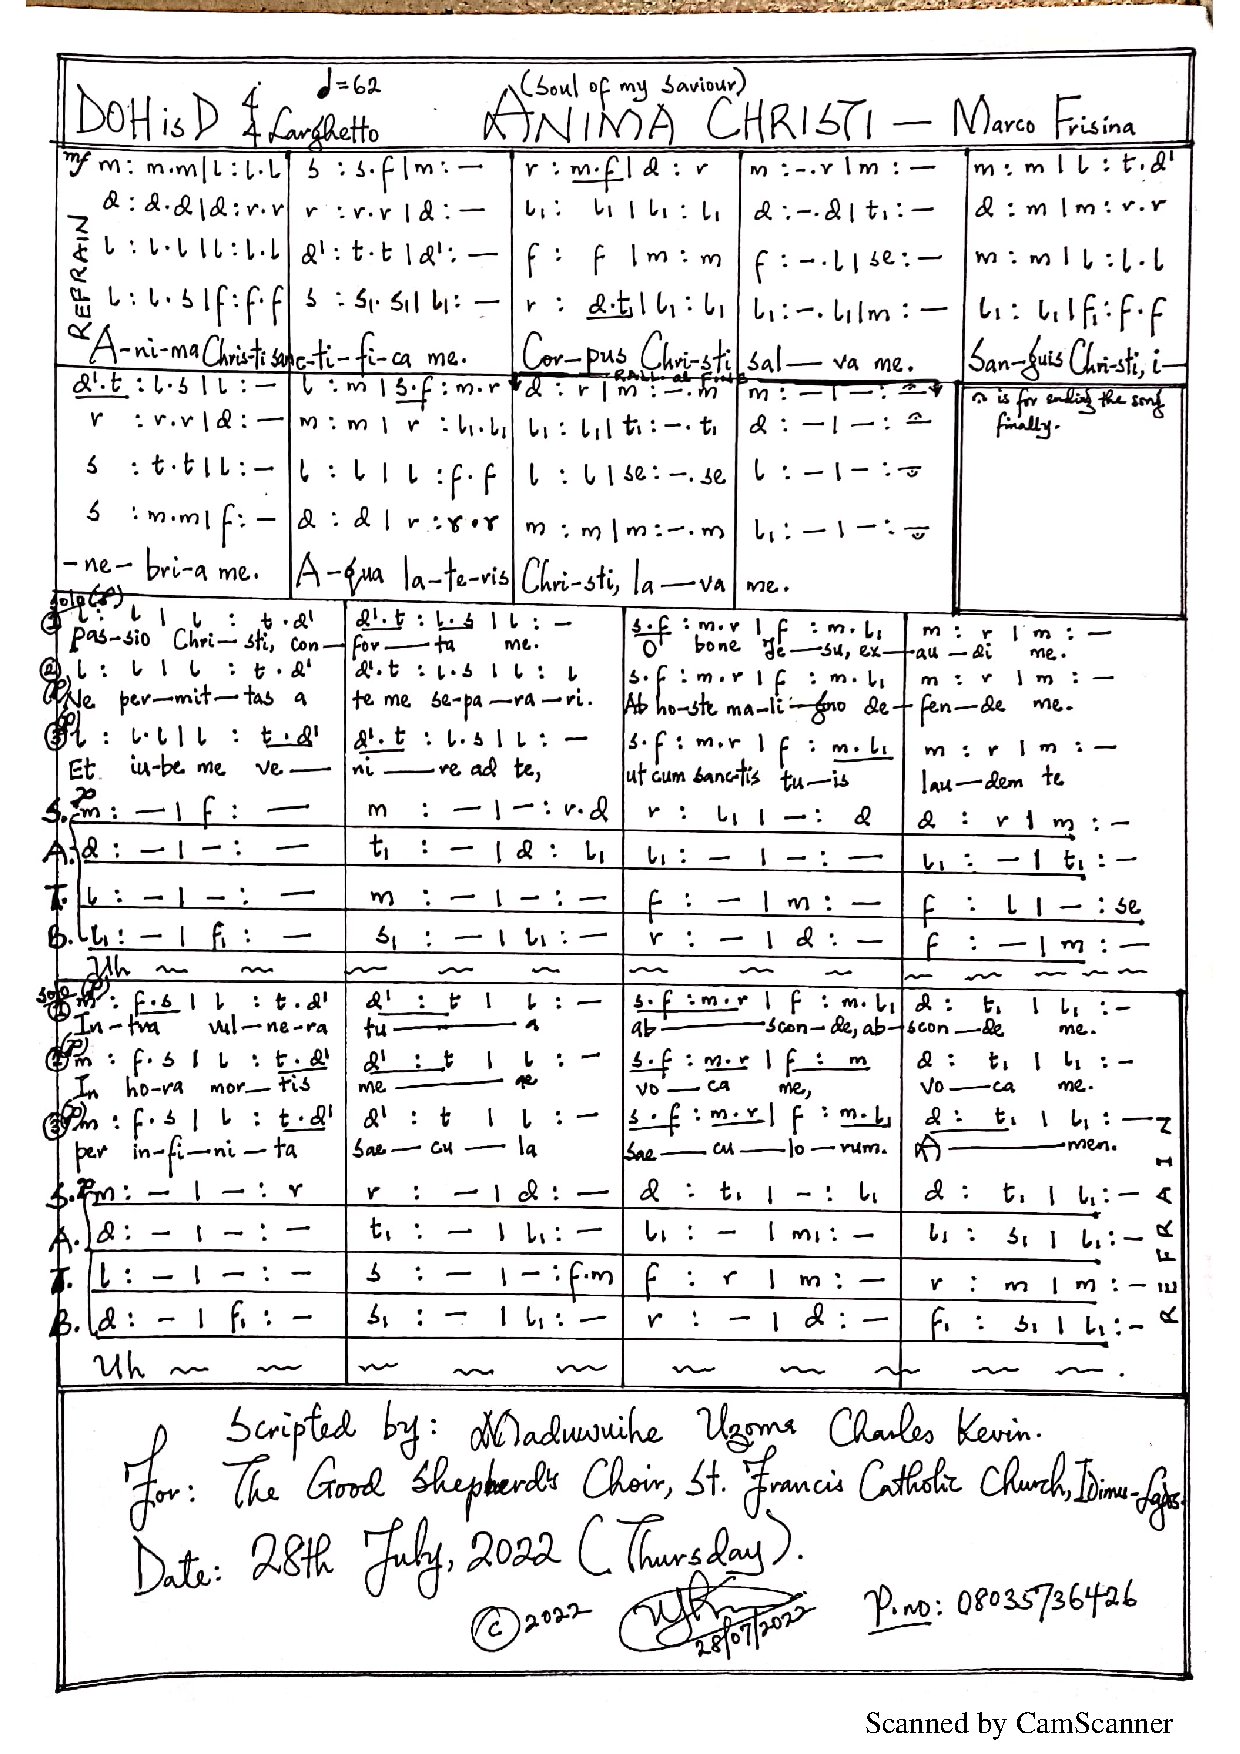 DOH is D 4/4 ♩=62 Larghetto
(Soul of my Saviour)
ANIMA CHRISTI — Marco Frisina
REFRAIN
mf m : m.m | l : l.l | s : s.f | m : — | r : m.f | d : r | m : -.r | m : — | m : m | l : t.d'
d : d.d | d : r.r | r : r.r | d : — | l₁ : l₁ | l₁ : l₁ | d : -.d | t₁ : — | d : m | m : r.r
l : l.l | l : l.l | d' : t.t | d' : — | f : f | m : m | f : -.l | se : — | m : m | l : l.l
l : l.s | f : f.f | s : s₁.s₁ | l₁ : — | r : d.t₁ | l₁ : l₁ | l₁ : -.l₁ | m : — | l₁ : l₁ | f₁ : f.f
A-ni-ma Chris-ti sanc-ti-fi-ca me. Cor-pus Chri-sti sal—va me. San-guis Chri-sti, i—
d'.t : l.s | l : — | l : m | s.f : m.r | d : r | m : -.m | m : — | — : 𝄐
r : r.r | d : — | m : m | r : l₁.l₁ | l₁ : l₁ | t₁ : -.t₁ | d : — | — : 𝄐
s : t.t | l : — | l : l | l : f.f | l : l | se : -.se | l : — | — : 𝄐
s : m.m | f : — | d : d | r : r.r | m : m | m : -.m | l₁ : — | — : 𝄐
-ne-bri-a me. A-qua la-te-ris Chri-sti, la—va me.
𝄐 is for ending the song
finally.
Solo (p)
① l : l | l : t.d' | d'.t : l.s | l : — | s.f : m.r | f : m.l₁ | m : r | m : —
Pas-sio Chri-sti, con-for—ta me. O bone Je—su, ex—au-di me.
② l : l | l : t.d' | d'.t : l.s | l : l | s.f : m.r | f : m.l₁ | m : r | m : —
(p) Ne per-mit-tas a te me se-pa-ra-ri. Ab ho-ste ma-li-gno de-fen-de me.
(p) ③ l : l.l | l : t.d' | d'.t : l.s | l : — | s.f : m.r | f : m.l₁ | m : r | m : —
Et iu-be me ve—ni—re ad te, ut cum sanctis tu-is lau-dem te
S. p m : — | f : — | m : — | — : r.d | r : l₁ | — : d | d : r | m : —
A. d : — | — : — | t₁ : — | d : l₁ | l₁ : — | — : — | l₁ : — | t₁ : —
T. l : — | — : — | m : — | — : — | f : — | m : — | f : l | — : se
B. l₁ : — | f₁ : — | s₁ : — | l₁ : — | r : — | d : — | f : — | m : —
Uh
Solo (p)
① m : f.s | l : t.d' | d' : t | l : — | s.f : m.r | f : m.l₁ | d : t₁ | l₁ : —
In-tra vul-ne-ra tu—a ab—scon-de, ab-scon-de me.
(p) ② m : f.s | l : t.d' | d' : t | l : — | s.f : m.r | f : m | d : t₁ | l₁ : —
In ho-ra mor-tis me—ae vo—ca me, vo—ca me.
(p) ③ m : f.s | l : t.d' | d' : t | l : — | s.f : m.r | f : m.l₁ | d : t₁ | l₁ : —
per in-fi-ni-ta sae-cu-la sae—cu—lo-rum. A—men.
S. p m : — | — : r | r : — | d : — | d : t₁ | — : l₁ | d : t₁ | l₁ : —
A. d : — | — : — | t₁ : — | l₁ : — | l₁ : — | m₁ : — | l₁ : s₁ | l₁ : —
T. l : — | — : — | s : — | — : f.m | f : r | m : — | r : m | m : —
B. d : — | f₁ : — | s₁ : — | l₁ : — | r : — | d : — | f₁ : s₁ | l₁ : —
Uh
REFRAIN
Scripted by: Maduwuihe Uzoma Charles Kevin.
For: The Good Shepherd's Choir, St. Francis Catholic Church, Idimu-Lagos.
Date: 28th July, 2022 (Thursday).
© 2022
28/07/2022
P.no: 08035736426
Scanned by CamScanner